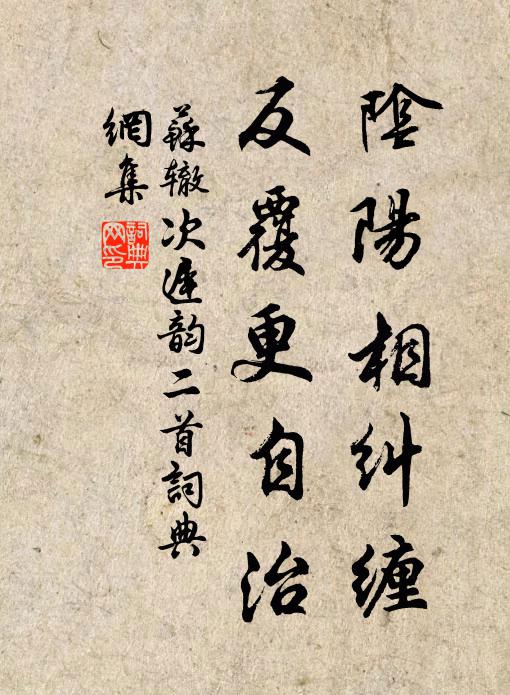 陰陽相糾纏
反覆更自治
蘇轍次遲韵二首詞典
網集
詞典
网印